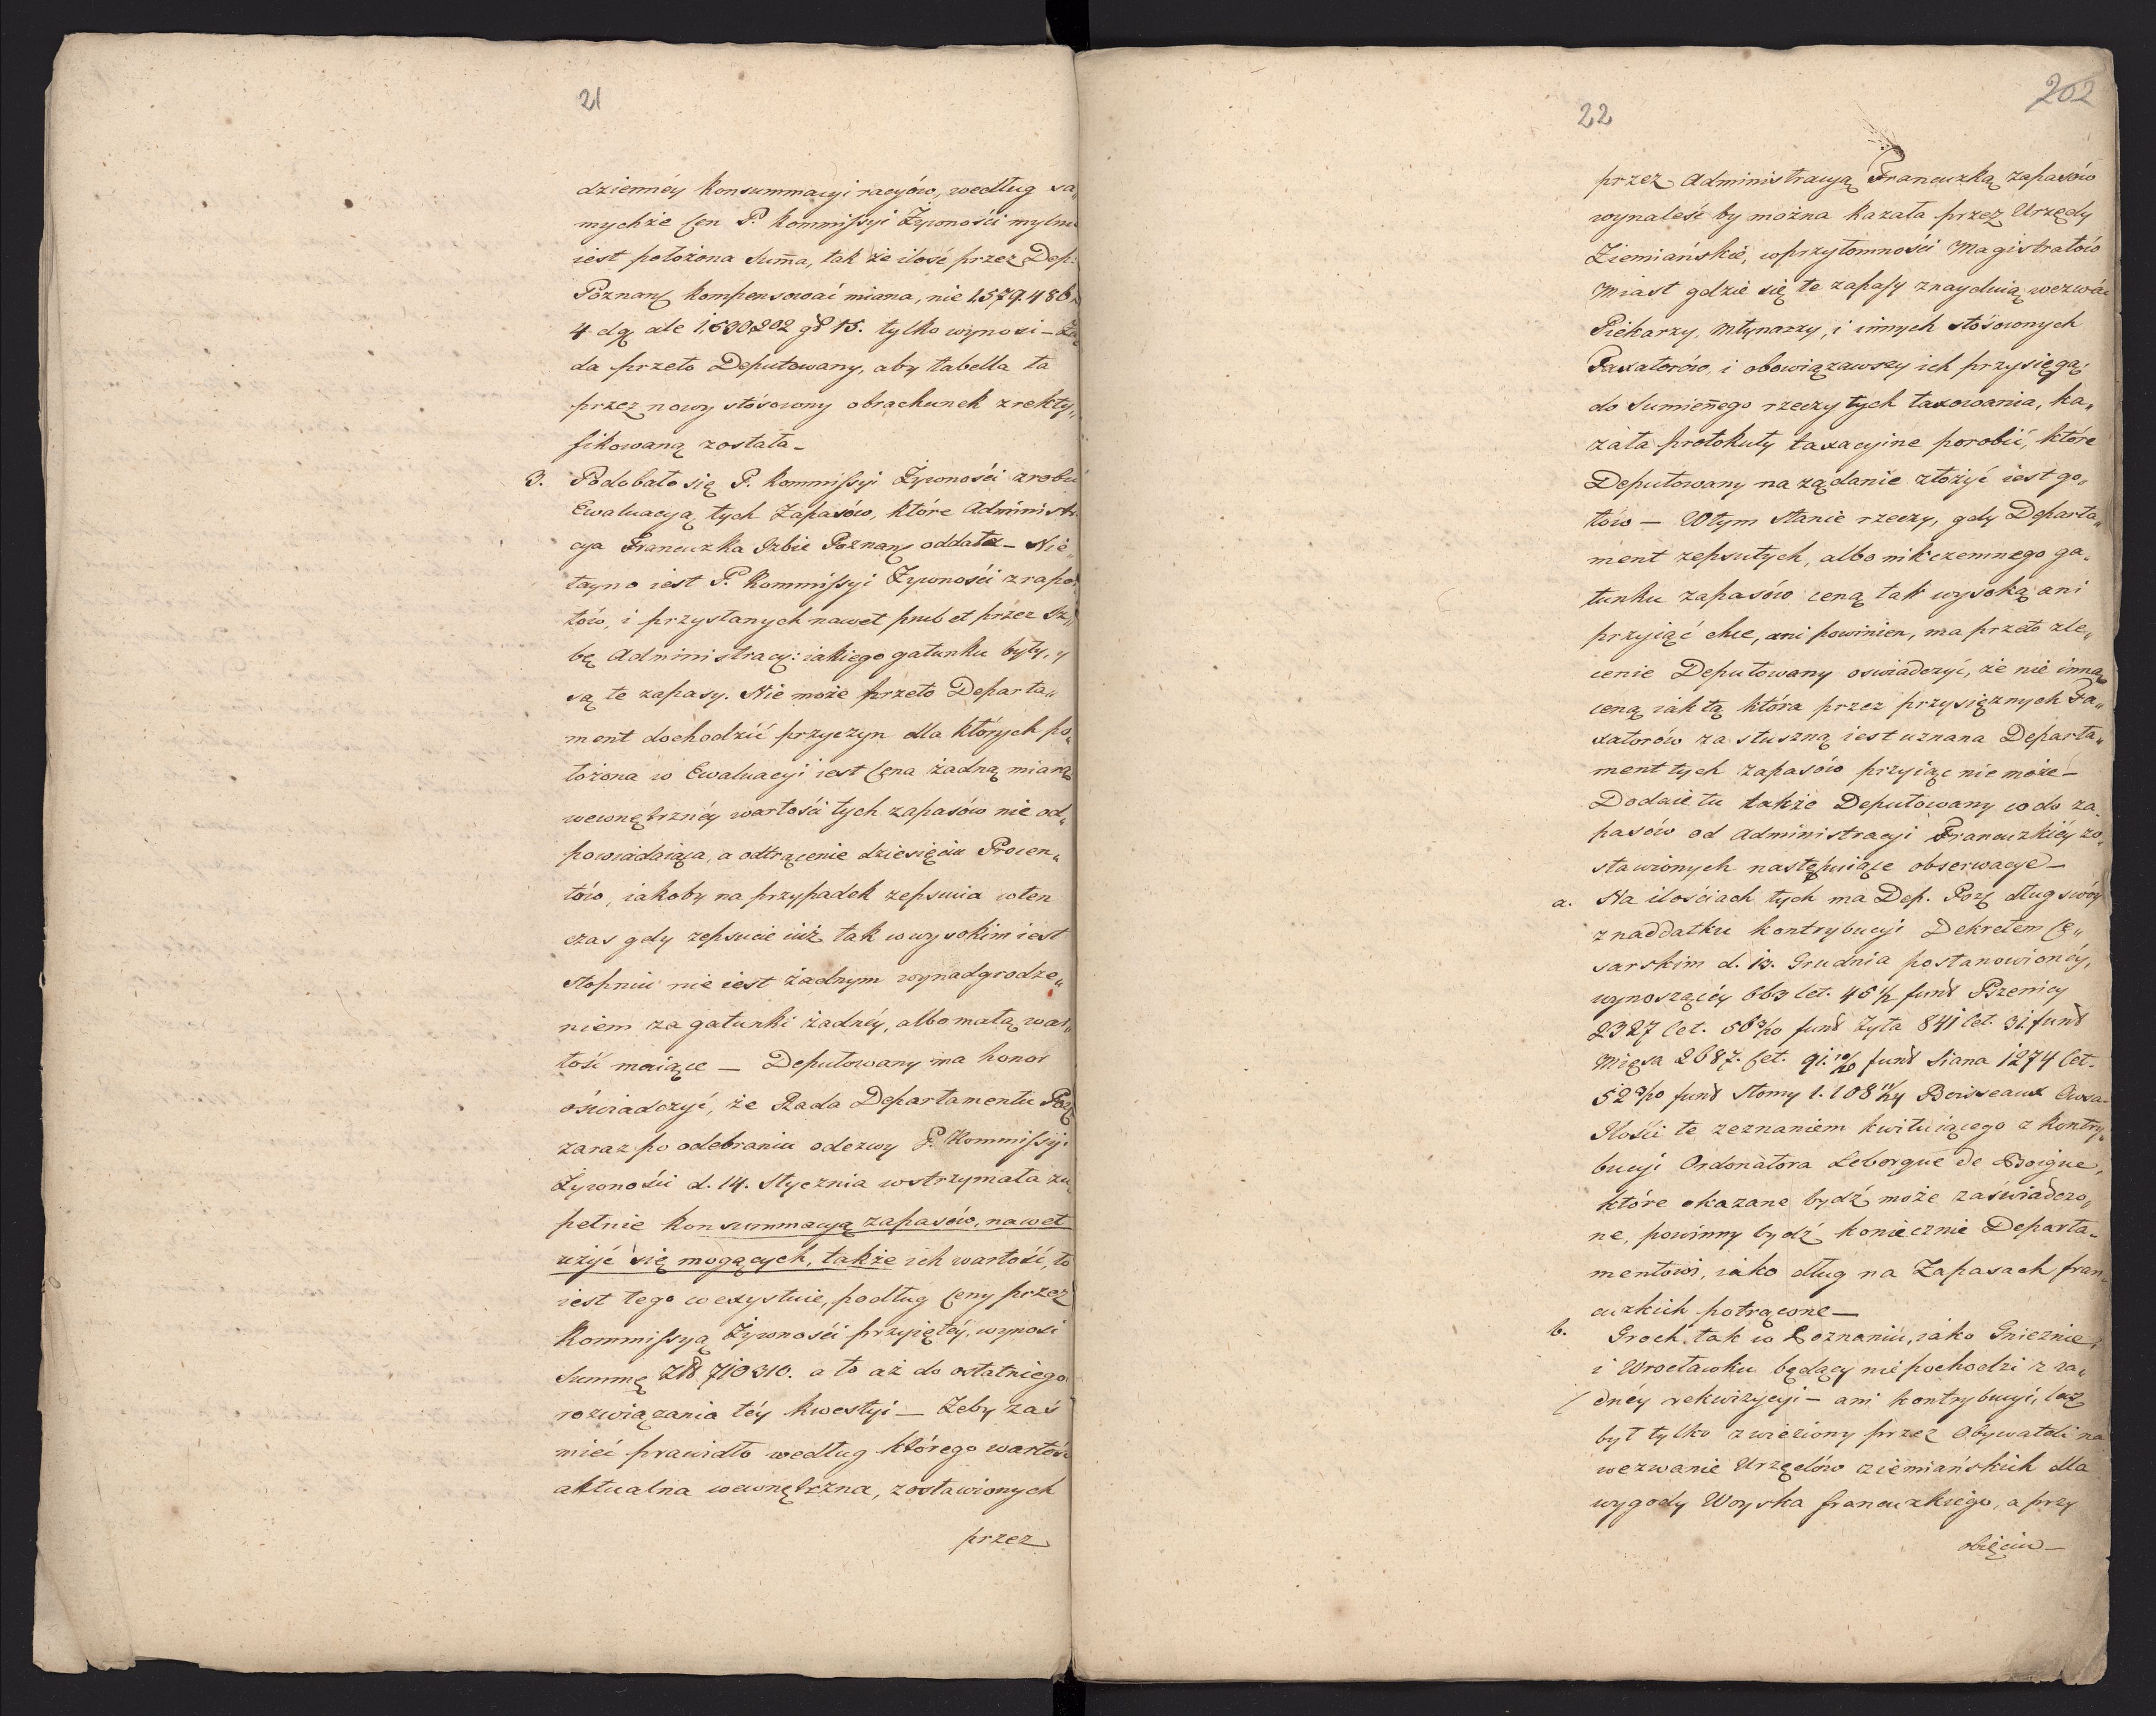 21
dziennéy konsummacyi racyów, według sa„
mychże Cen P. Kommissyi Żywnośći mylnie
iest położona Suma, tak że ilość przez Dep:
Poznań kompensować miana, nie 1.579.486
4 dą ale 1,530,202 gl 15. tylko wynosi —
da przeto Deputowany, aby tabella ta
przez nowy stósowny obrachunek zrekty„
fikowaną została —
3. Podobało się P. Kommissyi Żywnośći zrobić
Ewaluacyą tych Zapasów, które Administr
cya Francuzka Izbie Poznań oddała — Nie„
tayno iest P. Kommissyi Żywnośći z rapor
tów, i przysłanych nawet prub et przez Iz„
bę Administracy: iakiego gatunku były, y
są te zapasy. Nie może przeto Departa„
ment dochodzić przyczyn dla których po„
łożona w Ewaluacyi iest Cena żadną miarą
wewnętrznéy wartośći tych zapasów nie od„
powiadaiąca, a odtrącenie dziesięciu Procen„
tów, iakoby na przypadek zepsucia w ten
czas gdy zepsucie iuż tak w wysokim iest
stopniu nie iest żadnym wynadgrodze„
niem za gatunki żadnéy, albo małą war„
tość maiące — Deputowany ma honor
óświadczyć, że Rada Departamentu Poz
zaraz po odebraniu odezwy P. Kommissyi
Żywnośći d. 14. Stycznia wstrzymała zu„
pełnie konsummacyą zapasów, nawet
użyć się mogących, także ich wartość, to
iest tego co exystuie, podług Ceny przez
Kommissyą Żywnośći przyiętéy, wynosi
Summę Zł 710310. a to aż do ostatniego
rozwiązania téy kwestyi — Żeby zaś
mieć prawidło według którego wartość
aktualna wewnętrzna, zostawionych
przez
202
22
przez Administracyą Francuzką zapasów
wynaleść by można kazała przez Urzędy
Ziemiańskie, w przytomnośći Magistratów
Miast gdzie się te zapasy znayduią wezwać
Piekarzy, Młynarzy, i innych stósownych
Taxatorów, i obowiązawszy ich przysięgą
do Sumieńego rzeczy tych taxowania, ka„
zała protokuły taxacyjne porobić, które
Deputowany na żądanie złożyć iest go„
tów — W tym Stanie rzeczy, gdy Departa„
ment zepsutych, albo nikczemnego ga„
tunku zapasów ceną tak wysoką ani
przyiąć chce, ani powinien, ma przeto zle„
cenie Deputowany oswiadczyć, że nie inną
ceną iak tą która przez przysięznych Ta„
xatorów za słuszną iest uznana Departa„
ment tych zapasów przyiąć nie może —
Dodaie tu także Deputowany co do za„
pasów od Administracyi Francuzkiéy zo„
stawionych następuiące obserwacye —
a. Na ilośćiach tych ma Dep. Poz dług swóy
z naddatku kontrybucyi Dekretem Ce„
sarskim d. 13. Grudnia postanowionéy,
wynoszącéy 663 Cet. 45 1/2 fund Pszenicy
2327 Cet. 56 3/10 fund Żyta 841 Cet. 31. fund
Mięsa 2687. Cet. 91. 10/20 fund Siana 1274 Cet.
52 3/10 fund Słomy 1.108 Boisseaux Owsa —
Ilośći te zeznaniem kwituiącego z kontry„
bucyi Ordonatora Leborgne de Boigne,
które okazane bydź może zaświadczo„
ne, powinny bydź koniecznie Departa„
mentowi, iako dług na Zapasach fran„
cuzkich potrącone —
b. Groch tak w Poznaniu, iako Gnieznie,
i Wrocławku będący nie pochodzi z ża„
dnéy rekwizycyi — ani kontrybucyi, lecz
był tylko zwieziony przez Obywateli na
wezwanie Urzędów ziemiańskich dla
wygody Woyska francuzkiego, a przy
obięciu —